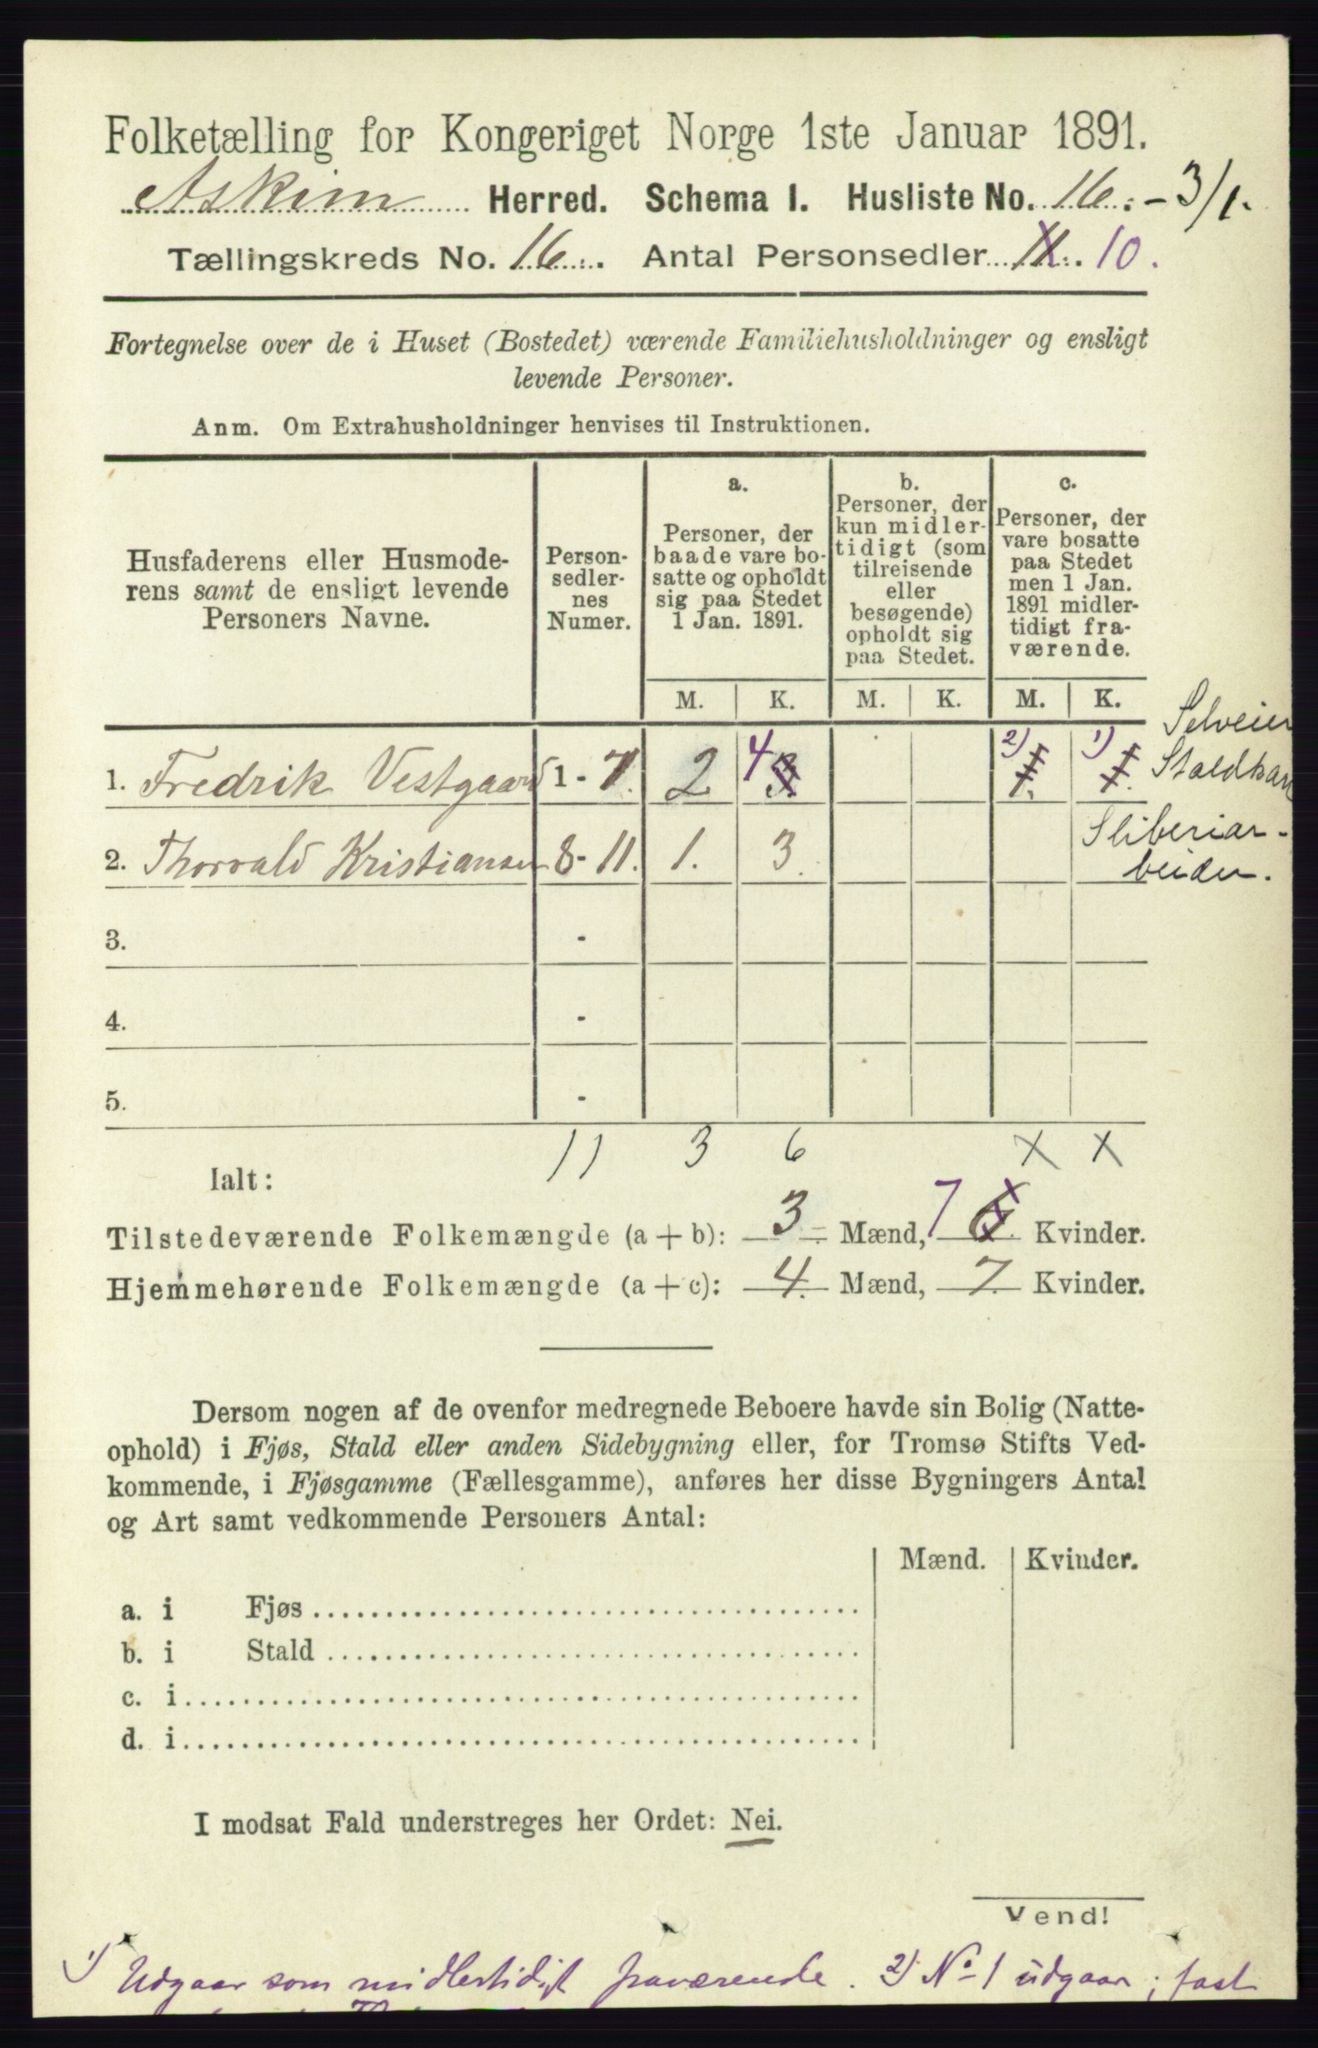 Folketælling for Kongeriget Norge 1ste Januar 1891.
Askim Herred. Schema I. Husliste No. 16. - 3/1.
Tællingskreds No. 16. Antal Personsedler 11. 10.
Fortegnelse over de i Huset (Bostedet) værende Familiehusholdninger og ensligt
levende Personer.
Anm. Om Extrahusholdninger henvises til Instruktionen.
Husfaderens eller Husmode-
rens samt de ensligt levende
Personers Navne.
Person-
sedler-
nes
Numer.
a.
Personer, der
baade vare bo-
satte og opholdt
sig paa Stedet
1 Jan. 1891.
b.
Personer, der
kun midler-
tidigt (som
tilreisende
eller
besøgende)
opholdt sig
paa Stedet.
c.
Personer, der
vare bosatte
paa Stedet
men 1 Jan.
1891 midler-
tidigt fra-
værende.
M. K. M. K. M. K.
1. Fredrik Vestgaard 1 - 7. 2 4 3. 2) 1. 1) 1. Selveier
2. Thorvald Kristiansen 8 - 11. 1. 3. Sliberiar-
beider.
3. -
4. -
5. -
Ialt: 11 3 6 x x
Tilstedeværende Folkemængde (a + b): 3 Mænd, 7 6 Kvinder.
Hjemmehørende Folkemængde (a + c): 4. Mænd, 7. Kvinder.
Dersom nogen af de ovenfor medregnede Beboere havde sin Bolig (Natte-
ophold) i Fjøs, Stald eller anden Sidebygning eller, for Tromsø Stifts Ved-
kommende, i Fjøsgamme (Fællesgamme), anføres her disse Bygningers Antal
og Art samt vedkommende Personers Antal:
Mænd. Kvinder.
a. i Fjøs
b. i Stald
c. i
d. i
I modsat Fald understreges her Ordet: Nei.
Vend!
1) Udgaar som midlertidigt fraværende. 2) No 1 udgaar; fast